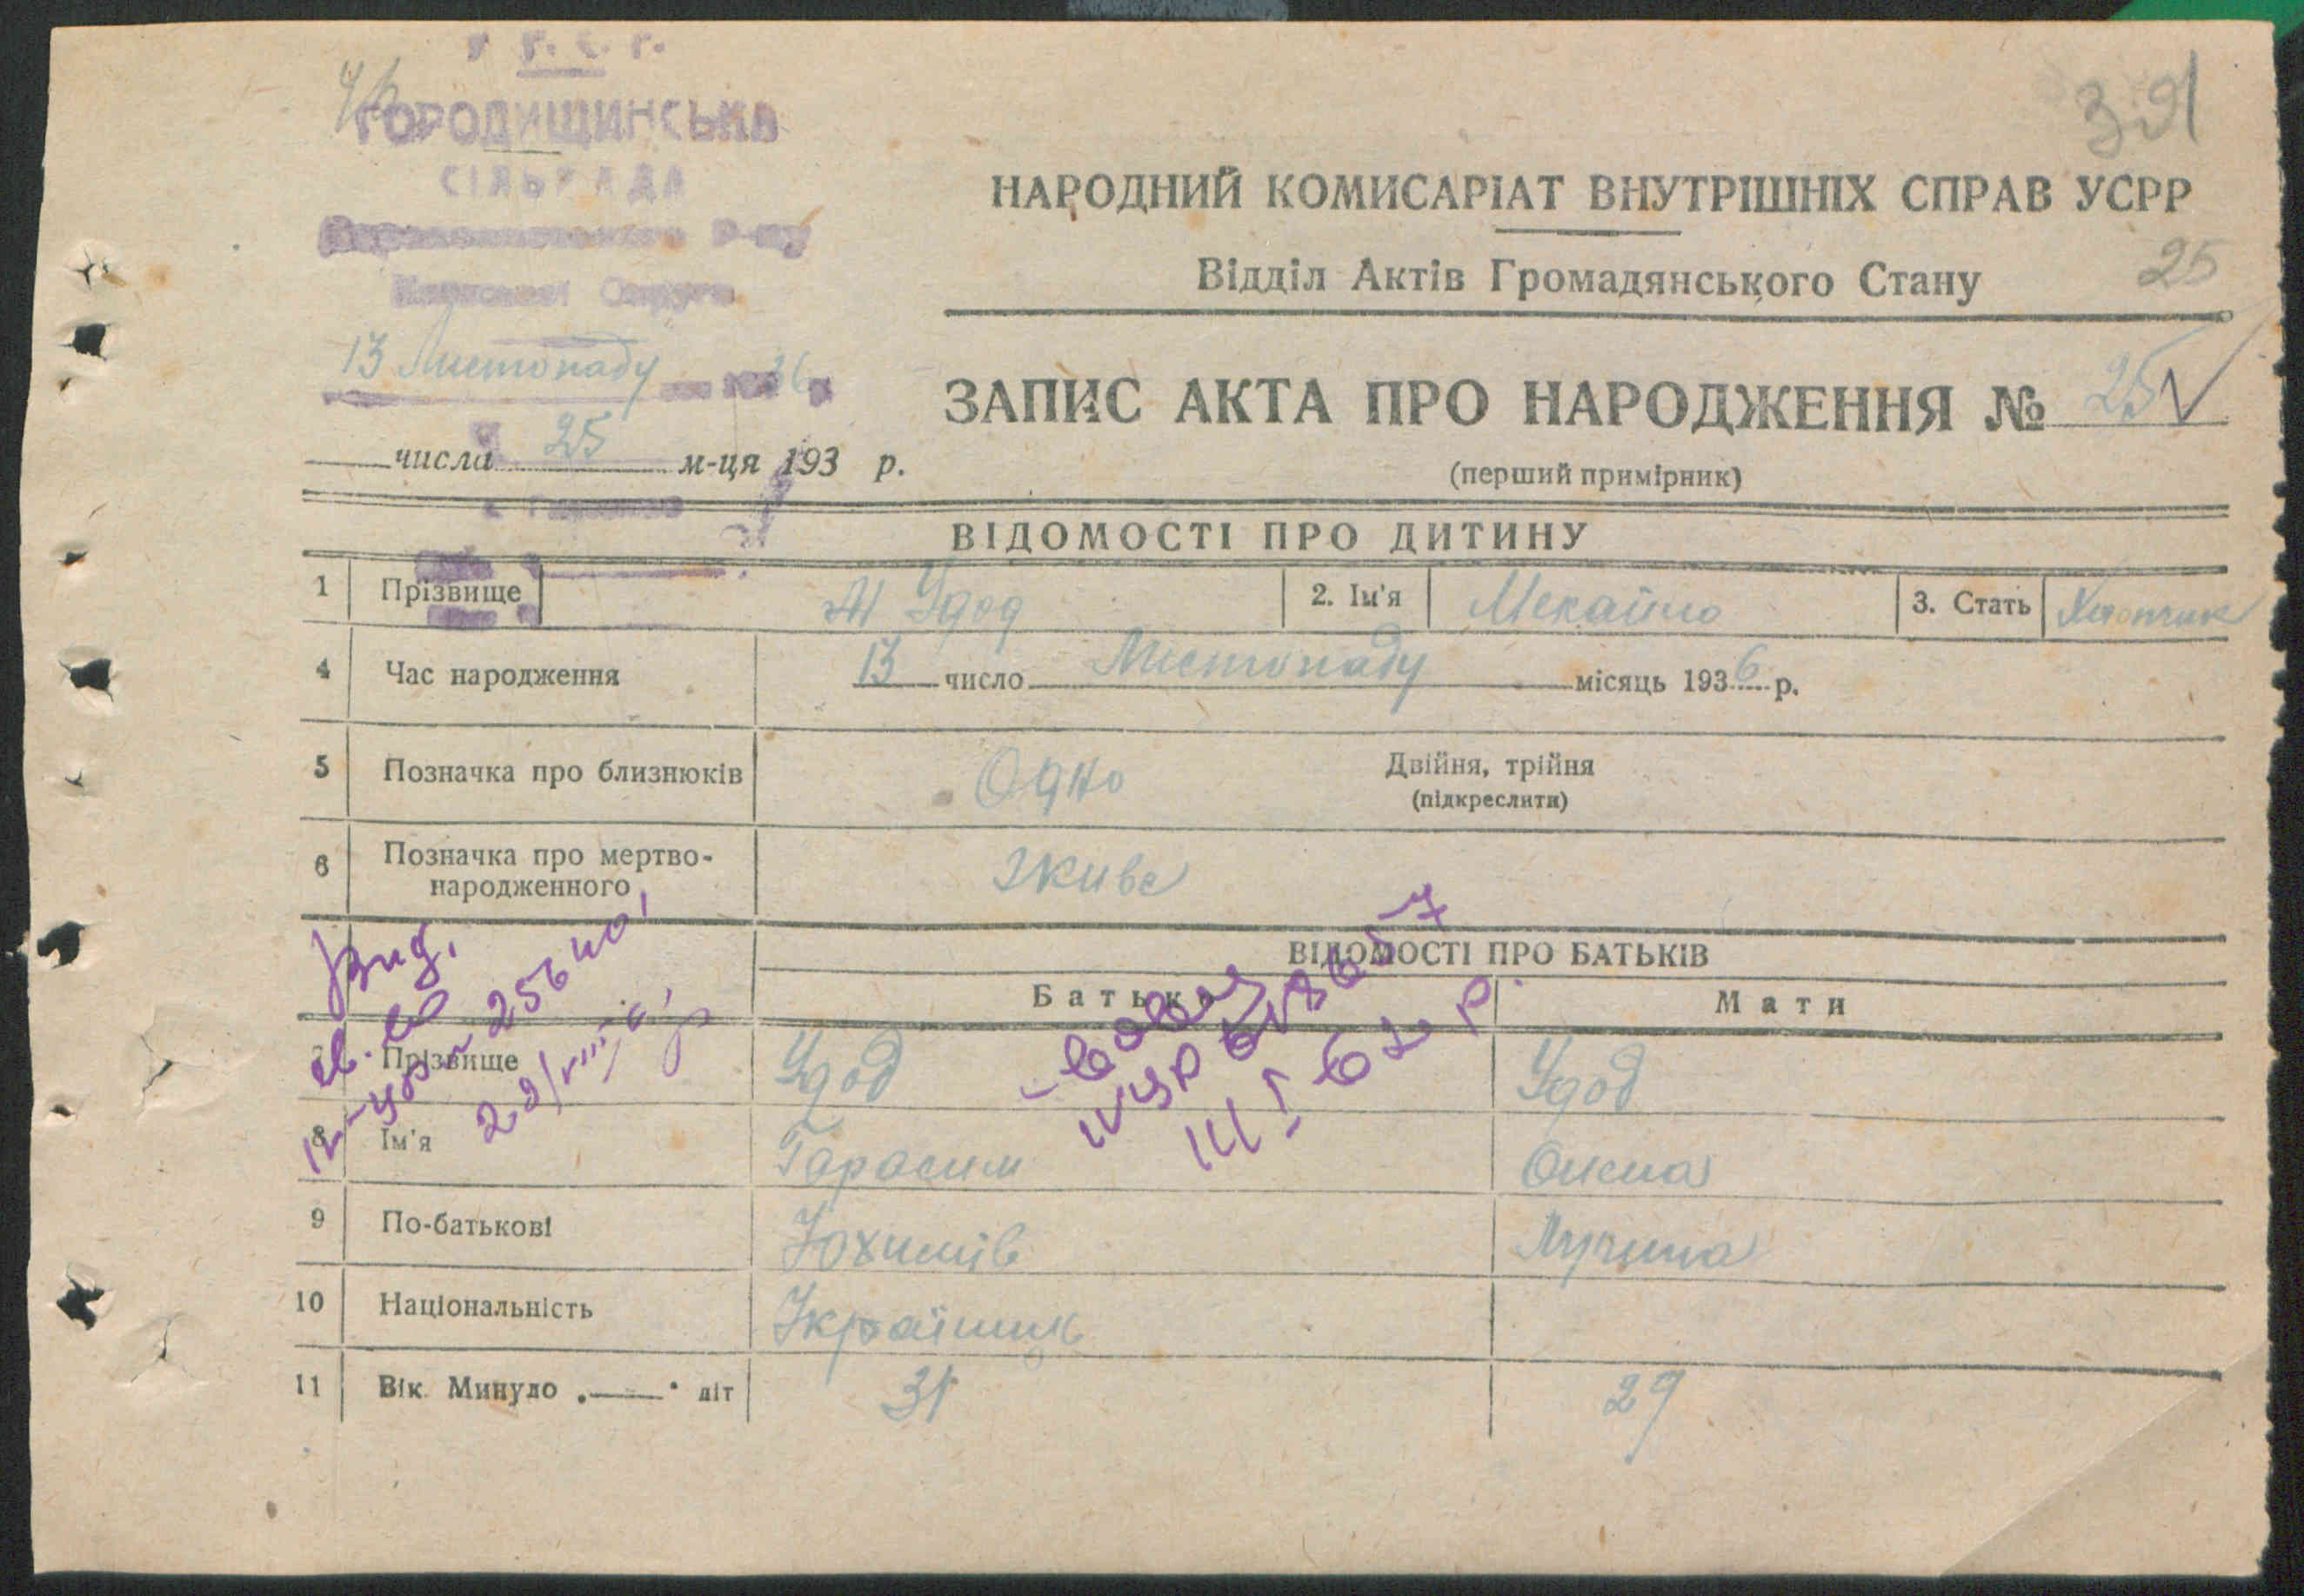 У. С. Р. Р.
ГОРОДИЩИНСЬКА
СІЛЬРАДА
Р-ну
Округи
391
НАРОДНИЙ КОМИСАРІАТ ВНУТРІШНІХ СПРАВ УСРР
Відділ Актів Громадянського Стану
25
13 Листопаду 36
ЗАПИС АКТА ПРО НАРОДЖЕННЯ № 25
25
числа м-ця 193 р.
(перший примірник)
ВІДОМОСТІ ПРО ДИТИНУ
1 Прізвище Удод 2. Ім'я Мекайло 3. Стать Хлопчик
4 Час народження 13 число Листопаду місяць 1936 р.
5 Позначка про близнюків Одно Двійня, трійня
(підкреслити)
6 Позначка про мертво-
народженного Живе
ВІДОМОСТІ ПРО БАТЬКІВ
Батько Мати
7 Прізвище Удод Удод
8 Ім'я Гарасим
9 По-батькові Юхимів
10 Національність Українець
11 Вік. Минуло „——“ літ 31 29